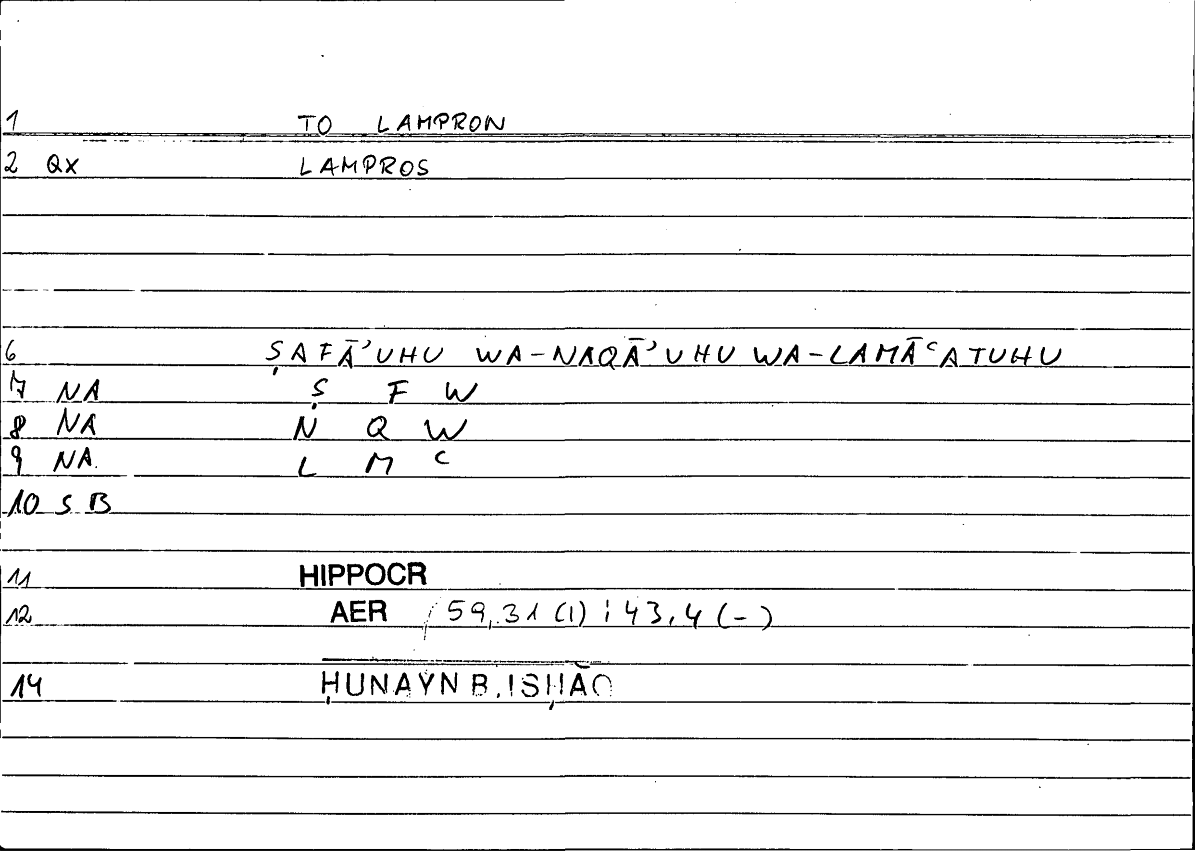 1 TO LAMPRON
2 QX LAMPROS
6 ṢAFĀʾUHU WA-NAQĀʾUHU WA-LAMĀʿATUHU
7 NA Ṣ F W
8 NA N Q W
9 NA. L M ʿ
10 S B
11 HIPPOCR
12 AER / 59,31 (1) ; 43,4 (-)
14 ḤUNAYN B. ISḤĀQ